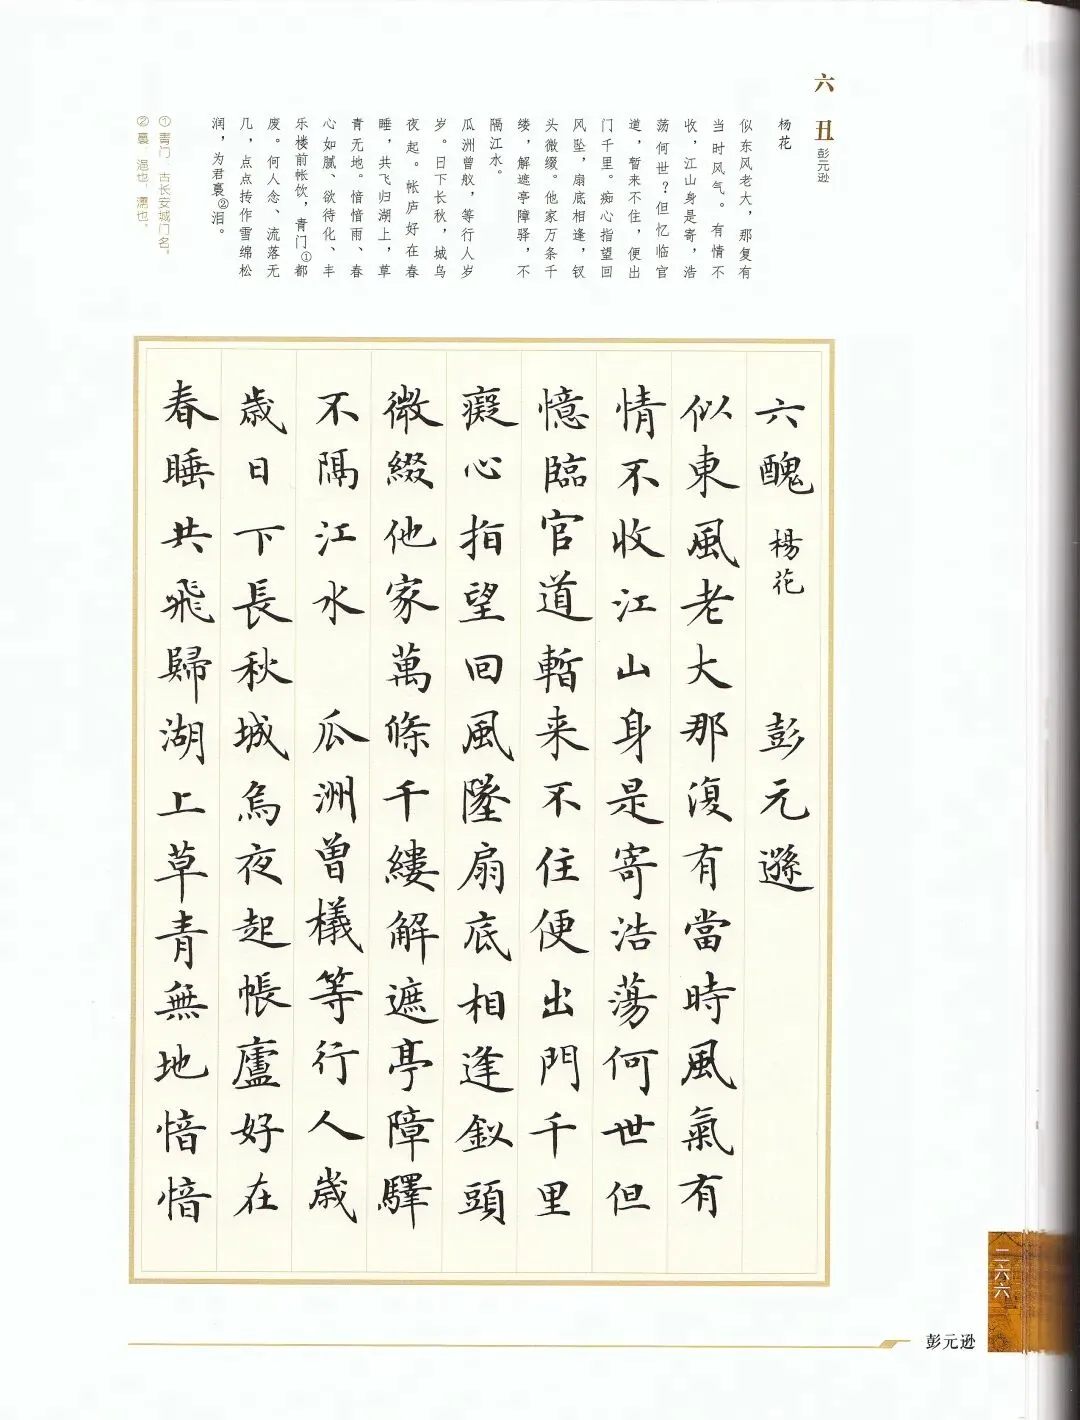 六 丑 彭元逊
杨花
似东风老大，那复有
当时风气。有情不
收，江山身是寄，浩
荡何世？但忆临官
道，暂来不住，便出
门千里。痴心指望回
风坠，扇底相逢，钗
头微缀。他家万条千
缕，解遮亭障驿，不
隔江水。
瓜洲曾舣，等行人岁
岁。日下长秋，城乌
夜起。帐庐好在春
睡，共飞归湖上，草
青无地。愔愔雨、春
心如腻、欲待化、丰
乐楼前帐饮，青门①都
废。何人念、流落无
几，点点抟作雪绵松
润，为君裛②泪。
①青门：古长安城门名。
②裛：浥也，濡也。
六醜 楊花 彭元遜
似東風老大那復有當時風氣有
情不收江山身是寄浩蕩何世但
憶臨官道暫来不住便出門千里
癡心指望回風墜扇底相逢釵頭
微綴他家萬條千縷解遮亭障驛
不隔江水 瓜洲曾檥等行人歲
歲日下長秋城烏夜起帳廬好在
春睡共飛歸湖上草青無地愔愔
二六六
彭元逊